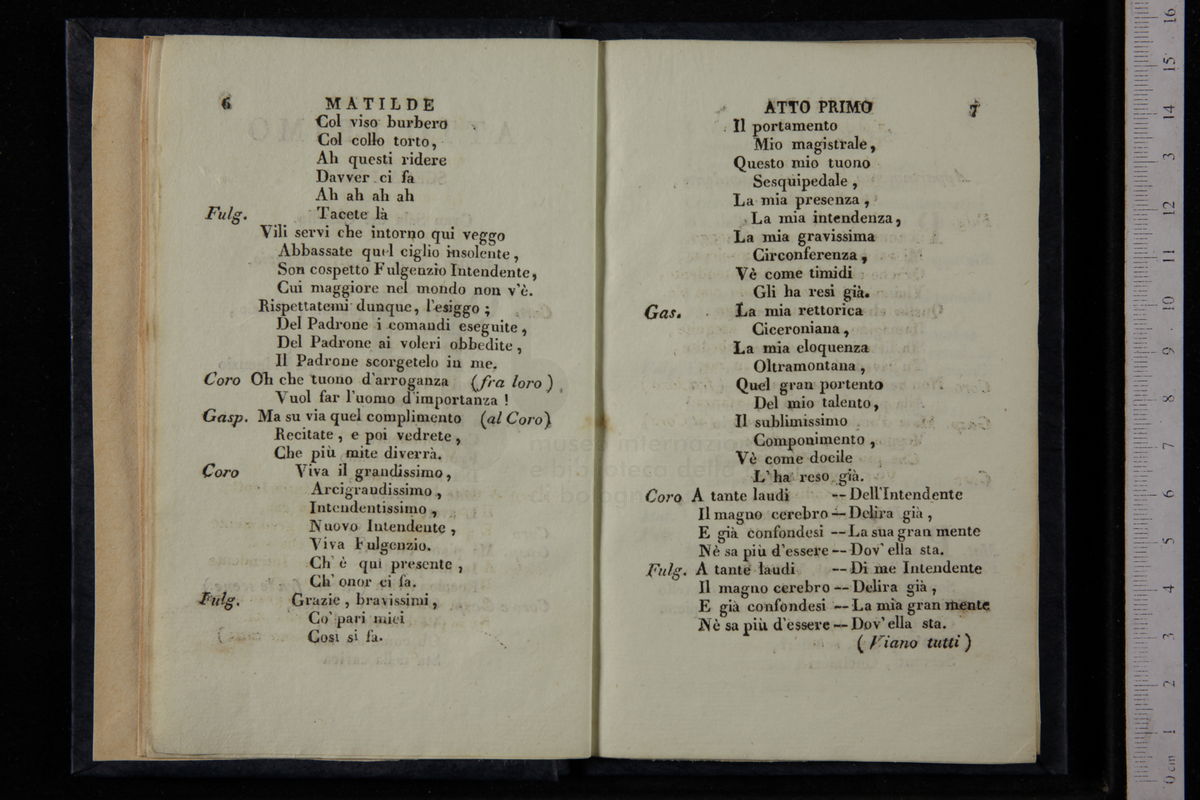 6 MATILDE
Col viso burbero
Col collo torto,
Ah questi ridere
Davver ci fa
Ah ah ah ah
Fulg. Tacete là
Vili servi che intorno qui veggo
Abbassate quel ciglio insolente,
Son cospetto Fulgenzio Intendente,
Cui maggiore nel mondo non v'è.
Rispettatemi dunque, l'esiggo;
Del Padrone i comandi eseguite,
Del Padrone ai voleri obbedite,
Il Padrone scorgetelo in me.
Coro Oh che tuono d'arroganza (fra loro)
Vuol far l'uomo d'importanza!
Gasp. Ma su via quel complimento (al Coro)
Recitate, e poi vedrete,
Che più mite diverrà.
Coro Viva il grandissimo,
Arcigrandissimo,
Intendentissimo,
Nuovo Intendente,
Viva Fulgenzio.
Ch' è qui presente,
Ch' onor ci fa.
Fulg. Grazie, bravissimi,
Co' pari miei
Così si fa.
ATTO PRIMO 7
Il portamento
Mio magistrale,
Questo mio tuono
Sesquipedale,
La mia presenza,
La mia intendenza,
La mia gravissima
Circonferenza,
Vè come timidi
Gli ha resi già.
Gas. La mia rettorica
Ciceroniana,
La mia eloquenza
Oltramontana,
Quel gran portento
Del mio talento,
Il sublimissimo
Componimento,
Vè come docile
L'ha reso già.
Coro A tante laudi -- Dell'Intendente
Il magno cerebro -- Delira già,
E già confondesi -- La sua gran mente
Nè sa più d'essere -- Dov' ella sta.
Fulg. A tante laudi -- Di me Intendente
Il magno cerebro -- Delira già,
E già confondesi -- La mia gran mente
Nè sa più d'essere -- Dov' ella sta.
(Viano tutti)
museo internazionale
e biblioteca della
di bologna
0 cm 1 2 3 4 5 6 7 8 9 10 11 12 13 14 15 16